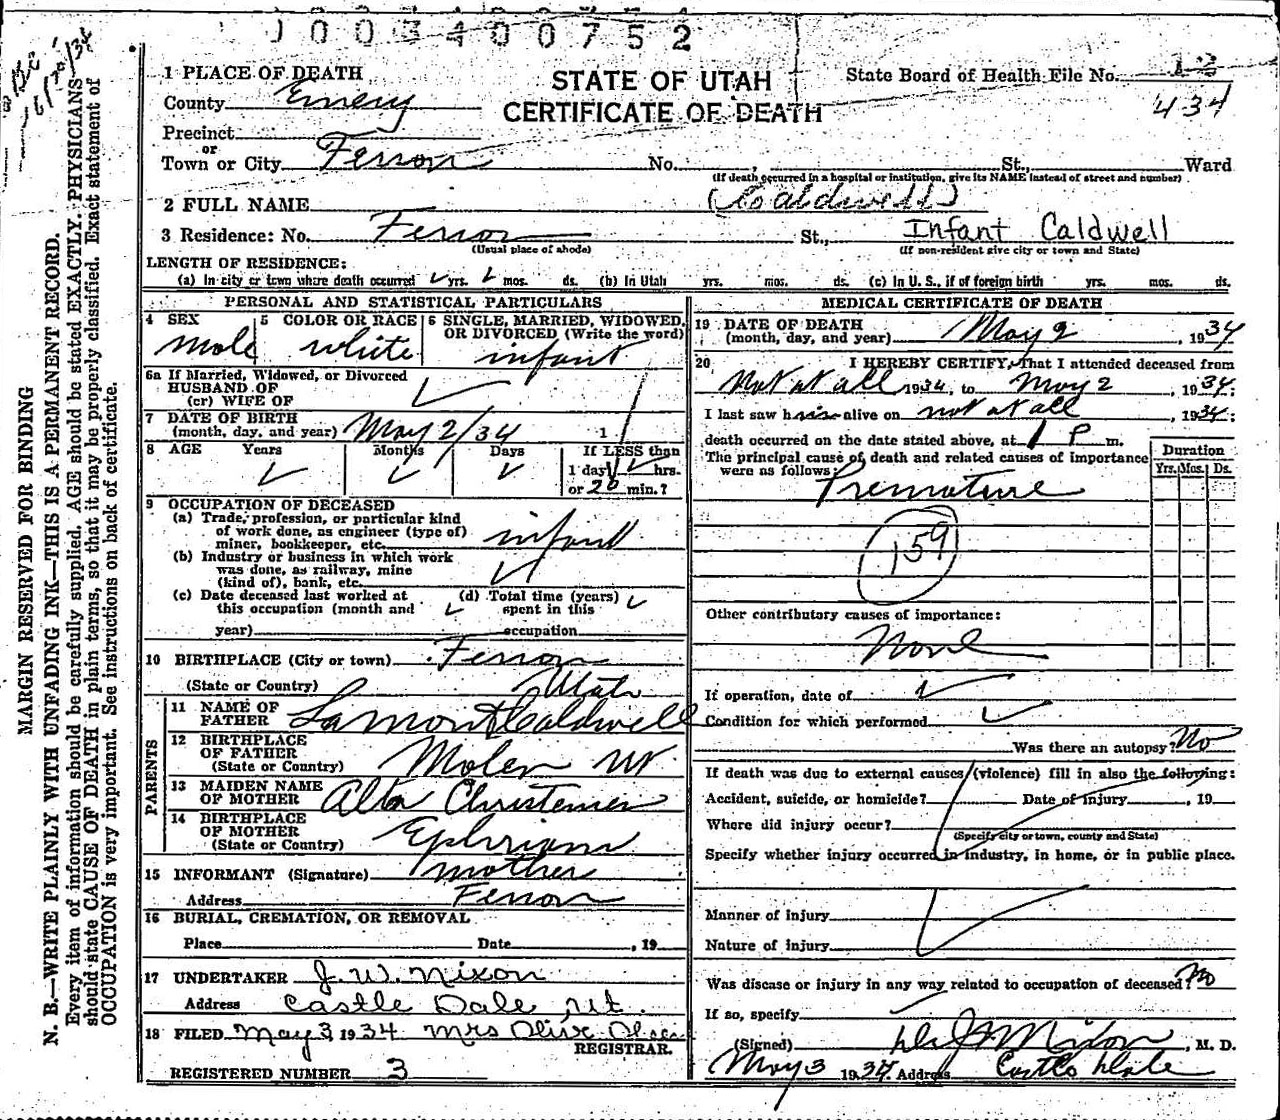 0003400752
1 PLACE OF DEATH
STATE OF UTAH
CERTIFICATE OF DEATH
State Board of Health File No.
434
County Emery
Precinct
or
Town or City Ferron No. , St., Ward
(If death occurred in a hospital or institution, give its NAME instead of street and number)
2 FULL NAME (Caldwell)
3 Residence: No. Ferron St., Infant Caldwell
(Usual place of abode) (If non-resident give city or town and State)
LENGTH OF RESIDENCE:
(a) In city or town where death occurred yrs. mos. ds. (b) In Utah yrs. mos. ds. (c) In U. S., if of foreign birth yrs. mos. ds.
PERSONAL AND STATISTICAL PARTICULARS
4 SEX 5 COLOR OR RACE 6 SINGLE, MARRIED, WIDOWED, OR DIVORCED (Write the word)
male white infant
6a If Married, Widowed, or Divorced
HUSBAND OF
(or) WIFE OF
7 DATE OF BIRTH
(month, day, and year) May 2/34 1
8 AGE Years Months Days If LESS than
1 day hrs.
or 20 min.?
9 OCCUPATION OF DECEASED
(a) Trade, profession, or particular kind
of work done, as engineer (type of)
miner, bookkeeper, etc. infant
(b) Industry or business in which work
was done, as railway, mine
(kind of), bank, etc.
(c) Date deceased last worked at (d) Total time (years)
this occupation (month and spent in this
year) occupation
10 BIRTHPLACE (City or town) Ferron
(State or Country) Utah
PARENTS
11 NAME OF
FATHER Lamont Caldwell
12 BIRTHPLACE
OF FATHER
(State or Country) Molen Ut
13 MAIDEN NAME
OF MOTHER Alta Christensen
14 BIRTHPLACE
OF MOTHER
(State or Country) Ephriam
15 INFORMANT (Signature) mother
Address Ferron
16 BURIAL, CREMATION, OR REMOVAL
Place Date , 19
17 UNDERTAKER J. W. Nixon
Address Castle Dale Ut.
18 FILED May 3 1934 Mrs Olive Olsen
REGISTRAR.
REGISTERED NUMBER 3
MEDICAL CERTIFICATE OF DEATH
19 DATE OF DEATH
(month, day, and year) May 2 , 1934
20 I HEREBY CERTIFY, That I attended deceased from
Not at all 1934, to May 2 , 1934;
I last saw him alive on not at all , 1934;
death occurred on the date stated above, at 1 P m.
The principal cause of death and related causes of importance
were as follows:
Duration
Yrs. Mos. Ds.
Premature
159
Other contributory causes of importance:
None
If operation, date of
Condition for which performed
Was there an autopsy? No
If death was due to external causes (violence) fill in also the following:
Accident, suicide, or homicide? Date of injury , 19
Where did injury occur?
(Specify city or town, county and State)
Specify whether injury occurred in industry, in home, or in public place.
Manner of injury
Nature of injury
Was disease or injury in any way related to occupation of deceased? No
If so, specify
(Signed) Nixon , M. D.
May 3 1934. Address Castle Dale
MARGIN RESERVED FOR BINDING
N. B.—WRITE PLAINLY WITH UNFADING INK—THIS IS A PERMANENT RECORD.
Every item of information should be carefully supplied. AGE should be stated EXACTLY. PHYSICIANS
should state CAUSE OF DEATH in plain terms, so that it may be properly classified. Exact statement of
OCCUPATION is very important. See instructions on back of certificate.